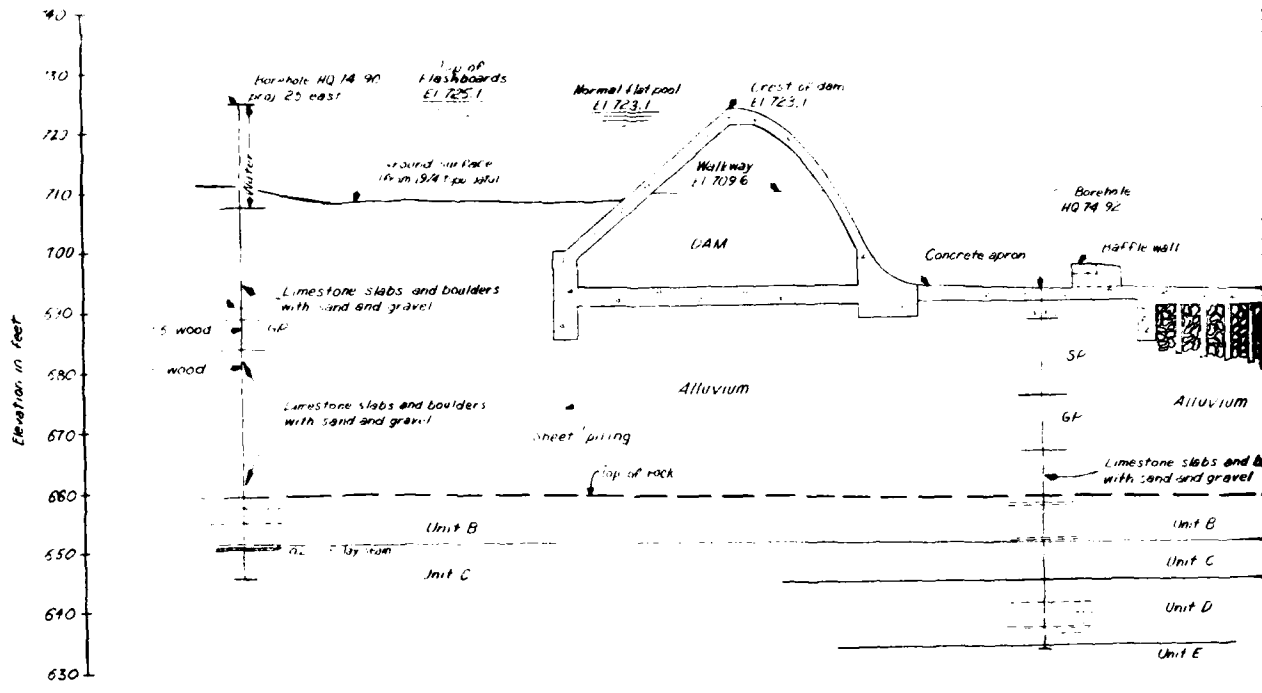 740
730
720
710
700
690
680
670
660
650
640
630
Elevation in feet
Borehole HQ 74 90
proj 25 east
Top of
Flashboards
El 725.1
Normal flat pool
El 723.1
Crest of dam
El 723.1
Water
Ground surface
Walkway
El 709.6
Borehole
HQ 74 92
DAM
Concrete apron
Baffle wall
Limestone slabs and boulders
with sand and gravel
wood
GP
wood
Limestone slabs and boulders
with sand and gravel
Alluvium
Sheet piling
SP
GP
Alluvium
Top of rock
Limestone slabs and b
with sand and gravel
Unit B
Unit B
Unit C
Unit C
Unit D
Unit E